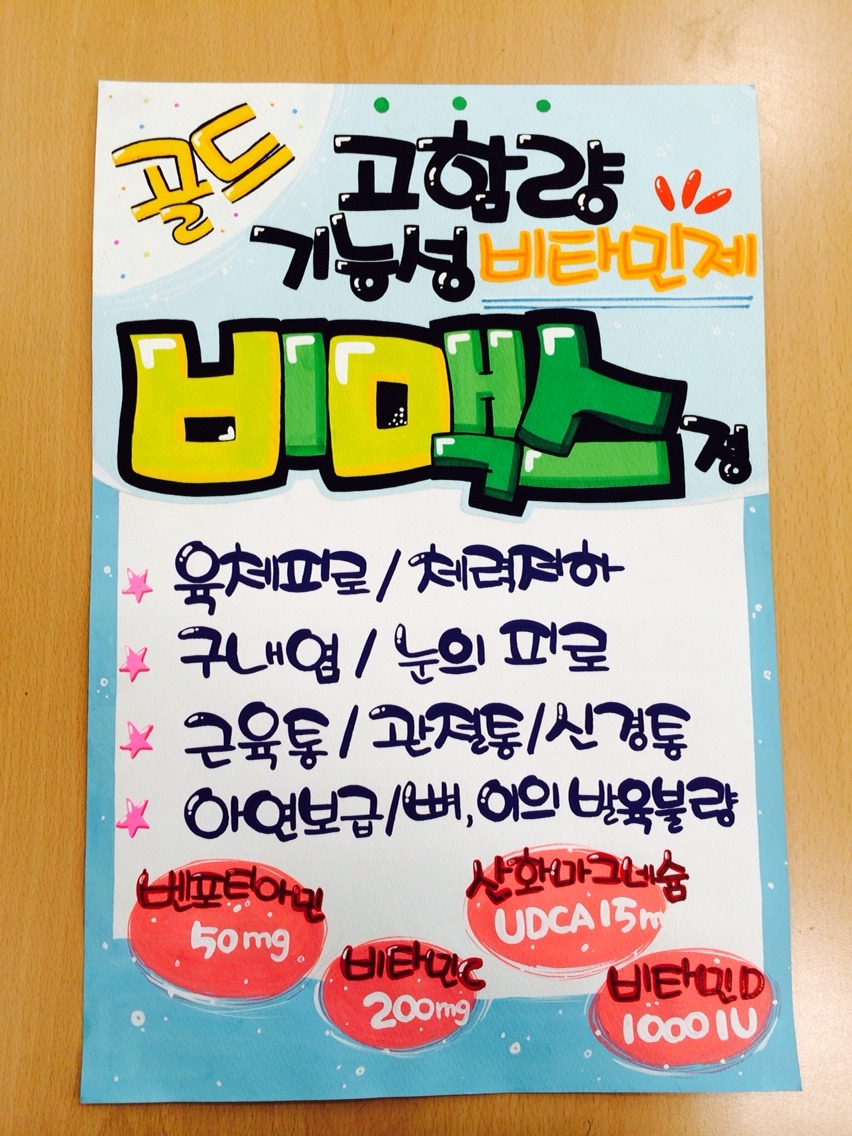 골드
고함량
기능성 비타민제
비맥스 정
육체피로 / 체력저하
구내염 / 눈의 피로
근육통 / 관절통 / 신경통
아연보급 / 뼈, 이의 발육불량
벤포티아민
50mg
산화마그네슘
UDCA 15m
비타민C
200mg
비타민D
1000 IU